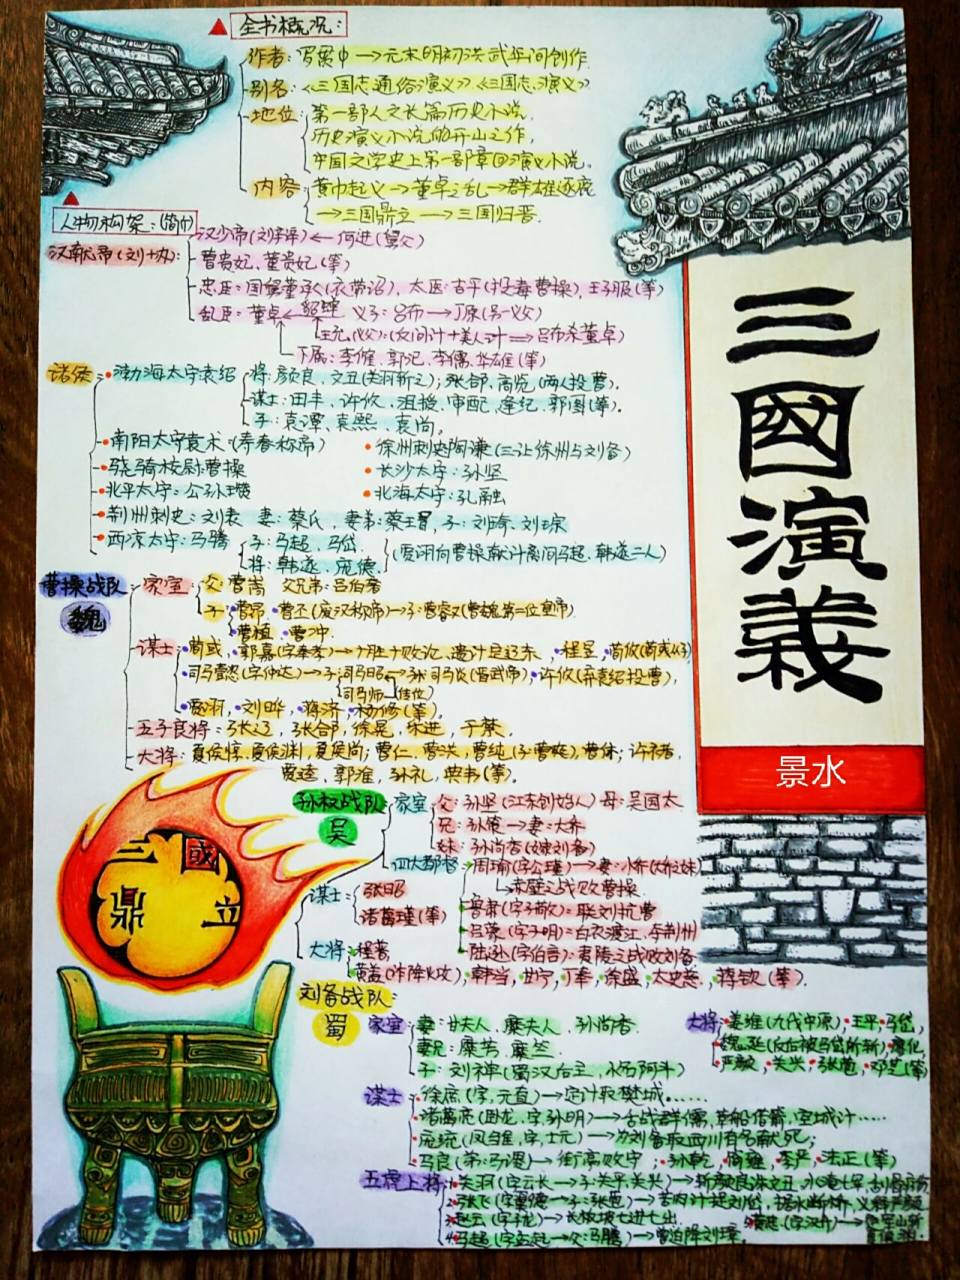 全书概况:
作者: 罗贯中→元末明初洪武年间创作
别名:《三国志通俗演义》《三国志演义》
地位: 第一部人文长篇历史小说.
历史演义小说的开山之作,
中国文学史上第一部章回演义小说。
内容: 黄巾起义→董卓之乱→群雄逐鹿
→三国鼎立→三国归晋.
人物构架:(简介)
汉献帝(刘协):
汉少帝(刘辩)←何进(舅父)
曹贵妃、董贵妃(等)
忠臣:国舅董承(衣带诏), 太医:吉平(投毒曹操), 王子服(等)
乱臣:董卓←貂蝉 义子:吕布→丁原(另一义父)
王允(义父):(反间计+美人计⇒吕布杀董卓)
下属:李傕、郭汜、李儒、华雄(等)
诸侯:
渤海太守袁绍
将:颜良、文丑(关羽斩之);张郃、高览(两人投曹).
谋士:田丰、许攸、沮授、审配、逢纪、郭图(等).
子:袁谭、袁熙、袁尚,
南阳太守袁术(寿春称帝)
徐州刺史陶谦(三让徐州与刘备)
骁骑校尉曹操
长沙太守:孙坚
北平太守:公孙瓒
北海太守:孔融
荆州刺史:刘表 妻:蔡氏, 妻弟:蔡瑁, 子:刘琦、刘琮
西凉太守:马腾
子:马超、马岱
将:韩遂、庞德
(贾诩向曹操献计离间马超、韩遂二人)
曹操战队
魏
家室:
父:曹嵩 父兄弟:吕伯奢
子:曹昂、曹丕(废汉称帝)→子:曹睿(曹魏第二位皇帝)
曹植、曹冲
谋士
荀彧, 郭嘉(字奉孝)→十胜十败论、遗计定辽东, 程昱, 荀攸(荀彧侄子)
司马懿(字仲达)→子:司马昭→孙:司马炎(晋武帝);许攸(弃袁绍投曹),
司马师(传位)
贾诩,刘晔,蒋济,杨修(等),
五子良将:张辽,张郃,徐晃,乐进,于禁,
大将:夏侯惇,夏侯渊,夏侯尚;曹仁,曹洪,曹纯(子:曹爽),曹休;许褚
贾逵,郭淮,孙礼,典韦(等).
三國鼎立
孙权战队
吴
家室
父:孙坚(江东创始人) 母:吴国太
兄:孙策→妻:大乔
妹:孙尚香(嫁刘备)
四大都督
周瑜(字公瑾)→妻:小乔(大乔之妹)
↳赤壁之战败曹操.
鲁肃(字子敬):联刘抗曹
吕蒙(字子明):白衣渡江,夺荆州
陆逊(字伯言):夷陵之战败刘备
谋士
张昭
诸葛瑾(等)
大将
程普
黄盖(诈降火攻),韩当,甘宁,丁奉,徐盛,太史慈,蒋钦(等).
刘备战队:
蜀
家室
妻:甘夫人、糜夫人、孙尚香.
妻兄:糜芳、糜竺.
子:刘禅(蜀汉后主,小名阿斗)
大将
姜维(九伐中原),王平,马岱,
魏延(反后被马岱所斩),廖化,
严颜,关兴,张苞,邓芝(等)
谋士
徐庶(字,元直)→定计取樊城……
诸葛亮(卧龙,字:孔明)→舌战群儒,草船借箭,空城计……
庞统(凤雏,字,士元)→为刘备取西川有名献死;
马良(弟:马谡)→街亭败守;孙乾,简雍,李严,法正(等)
五虎上将
1.关羽(字云长→子:关平,关兴)→斩颜良诛文丑,水淹七军,刮骨疗伤
2.张飞(字翼德→子:张苞)→苦肉计捉刘岱,据水断桥,义释严颜
3.赵云(字子龙)→长坂坡七进七出.
4.马超(字孟起→父:马腾)→曾迫降刘璋.
黄忠(字汉升)→定军山斩夏侯渊.
三國演義
景水